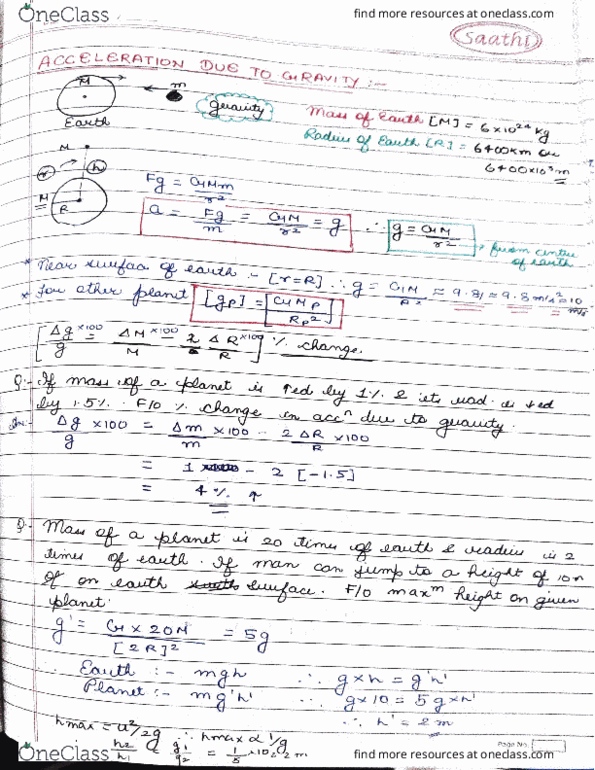 OneClass
find more resources at oneclass.com
Saathi
ACCELERATION DUE TO GRAVITY :-
M
m
gravity
Earth
Mass of Earth [M] = 6×10²⁴ kg
Radius of Earth [R] = 6400km or
6400×10³m
M
r
h
M
R
Fg = GMm/r²
a = Fg/m = GM/r² = g ∴ g = GM/r² → from centre of earth
* Near surface of earth :- [r=R] ∴ g = GM/R² ≈ 9.81 ≈ 9.8 m/s² ≈ 10 m/s²
* For other planet [gp] = [GMp/Rp²]
[Δg/g ×100 = ΔM/M ×100 - 2 ΔR/R ×100] % change.
Q:- If mass of a planet is ↑ed by 1% & its rad. is ↓ed
by 1.5%. F/O % change in accⁿ due to gravity.
Δg/g ×100 = Δm/m ×100 - 2ΔR/R ×100
= 1 - 2 [-1.5]
= 4% ↑
Q:- Mass of a planet is 20 times of earth & radius is 2
times of earth. If man can jump to a height of 10m
of on earth surface. F/O maxᵐ height on given
planet.
g' = G×20M/[2R]² = 5g
Earth :- mgh ∴ g×h = g'h'
Planet :- mg'h' ∴ g×10 = 5g×h'
∴ h' = 2m
hmax = u²/2g ∴ hmax ∝ 1/g
h2/h1 = g1/g2 = 1/5 ×10 = 2m
Page No.
OneClass
find more resources at oneclass.com